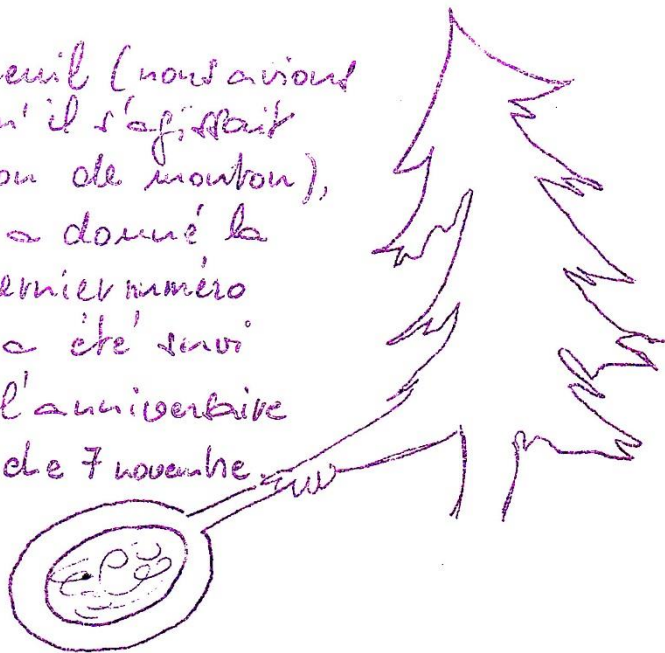 euil (nous avions
u'il s'agissait
on de mouton),
a donné la
ernier numéro
a été suivi
l'anniversaire
che 7 novembre.